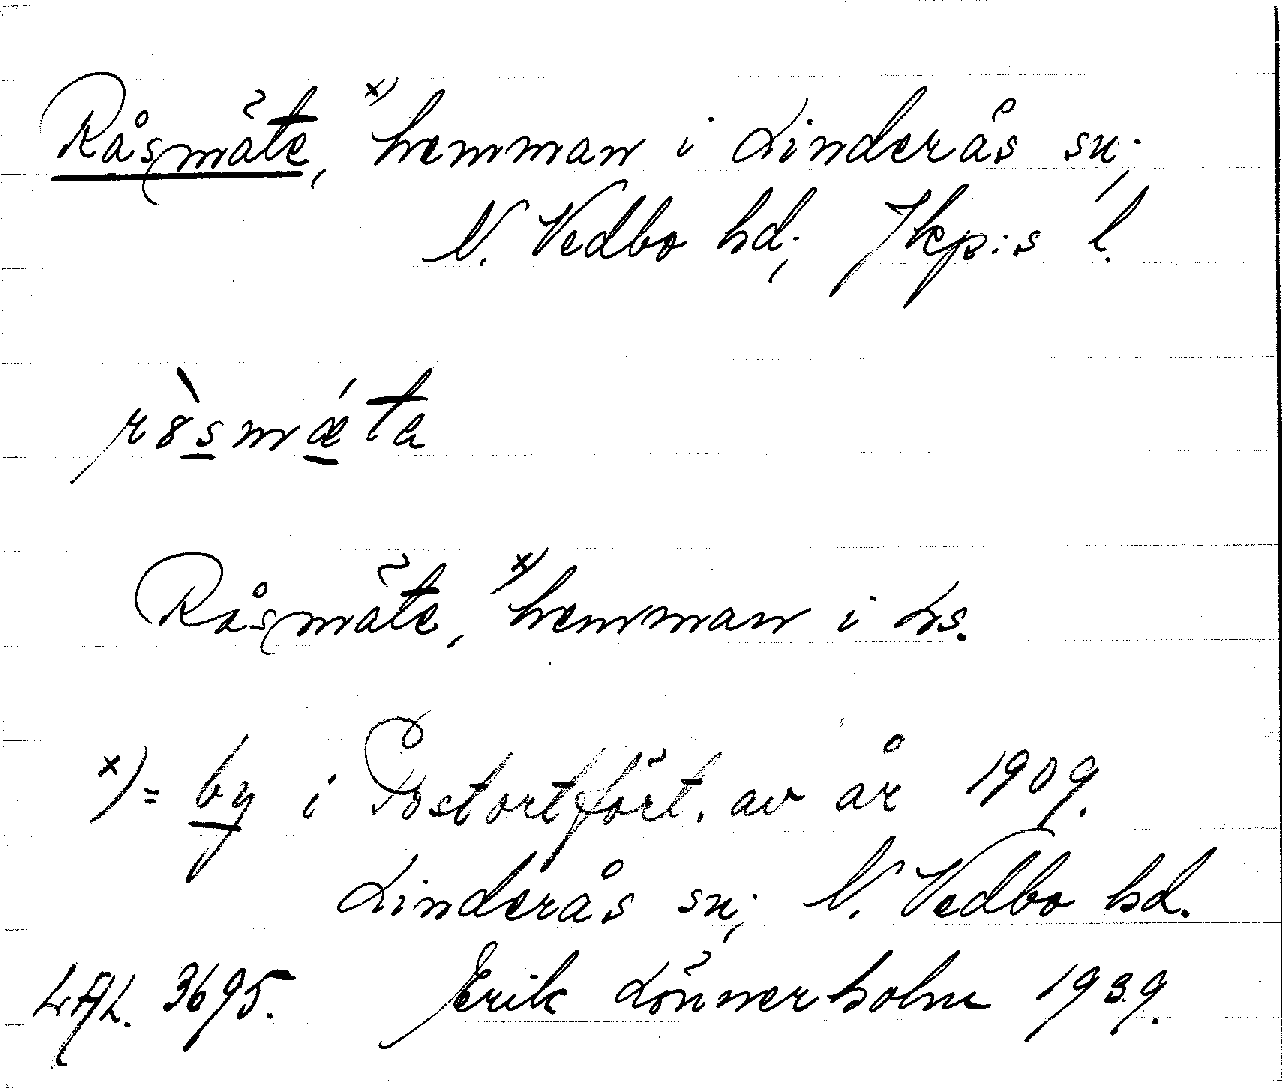 Råsmäte, x) hemman i Linderås sn;
N. Vedbo hd; Jkp:s l.
rò̀smǽta
Råsmäte, x) hemman i Ls.
x) = by i Postortfört. av år 1909.
Linderås sn; N. Vedbo hd.
LAL. 3695. Erik Lönnerholm 1939.